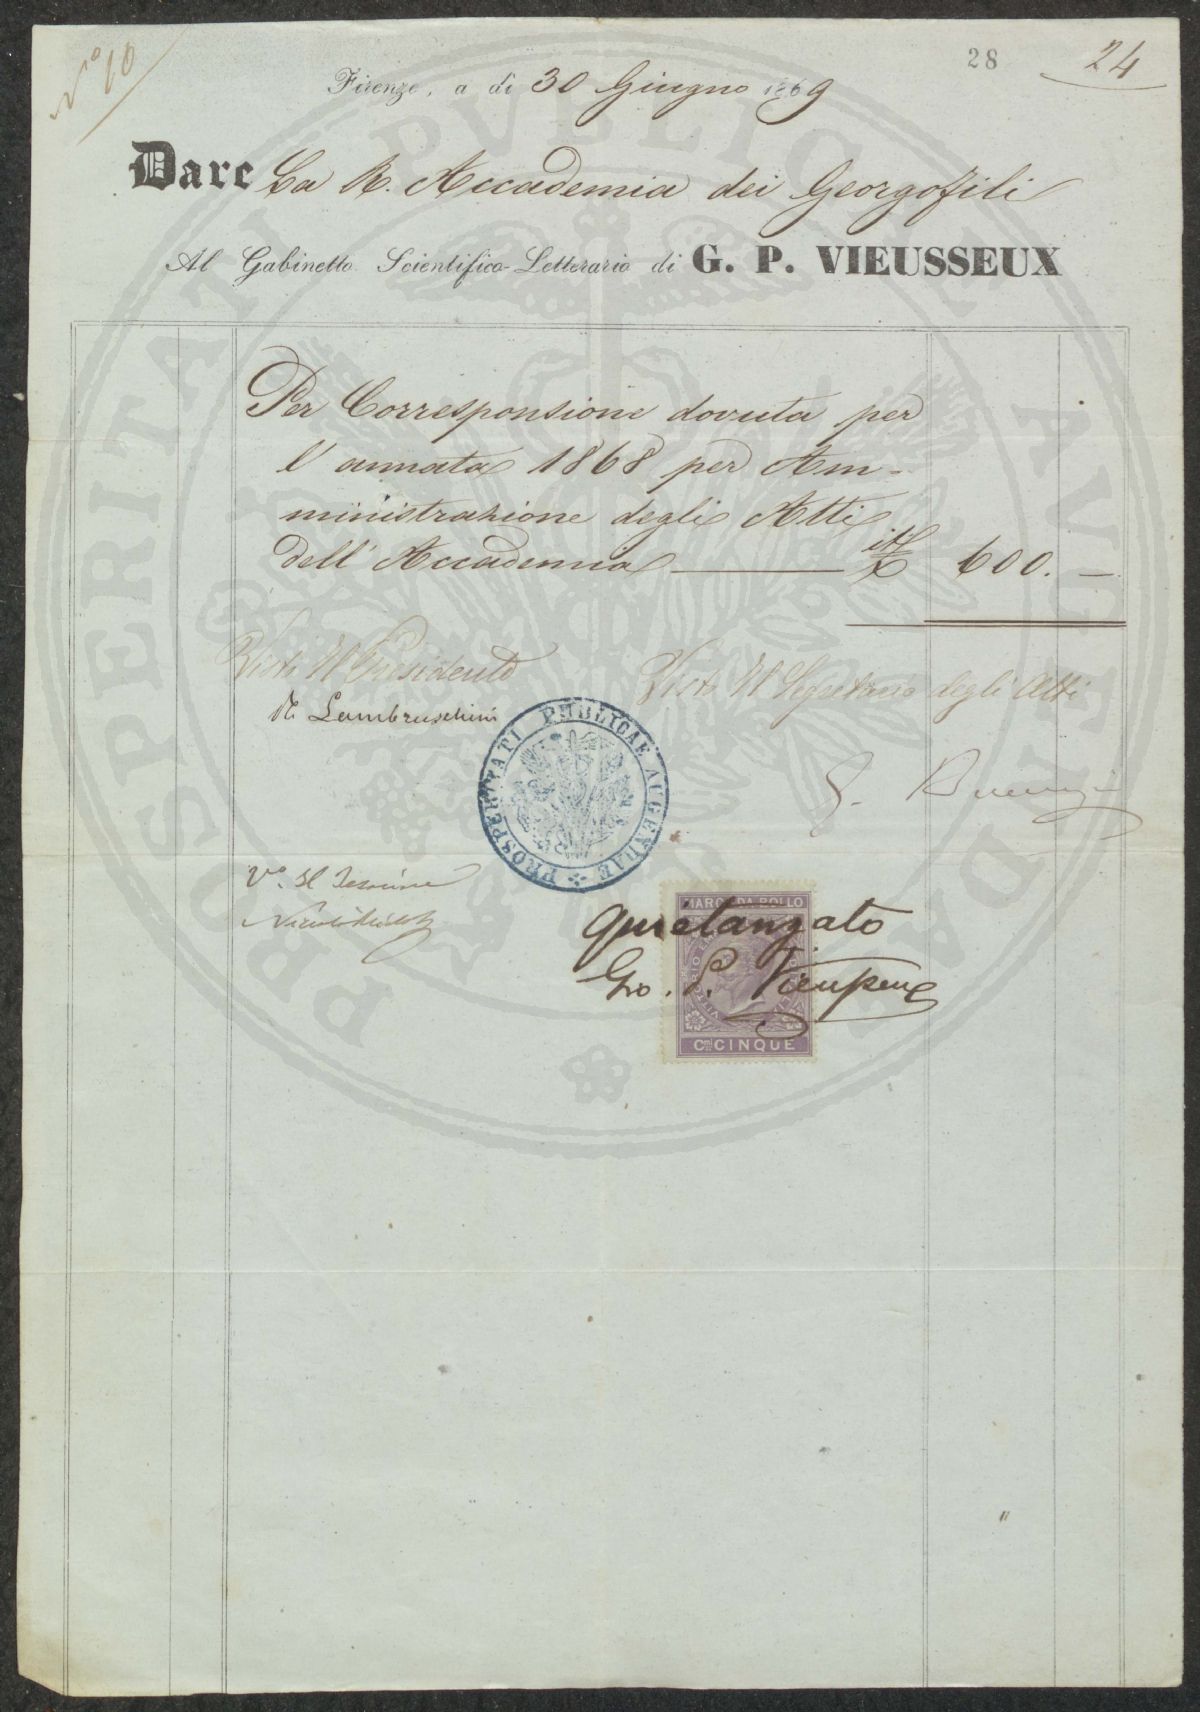 N.° 10
28
24
Firenze, a dì 30 Giugno 1869
Dare La R. Accademia dei Georgofili
Al Gabinetto Scientifico-Letterario di G. P. VIEUSSEUX
Per Corresponsione dovuta per
l'annata 1868 per Am-
ministrazione degli Atti
dell'Accademia itl £ 600. —
Visto Il Presidente
R. Lambruschini
Visto Il Segretario degli Atti
PROSPERITATI PUBLICAE AUGENDAE
V.° Il Tesoriere
MARCA DA BOLLO
quietanzato
Gio. P. Vieusseux
Cmi CINQUE
PROSPERITATI PVBLICAE AVGENDAE